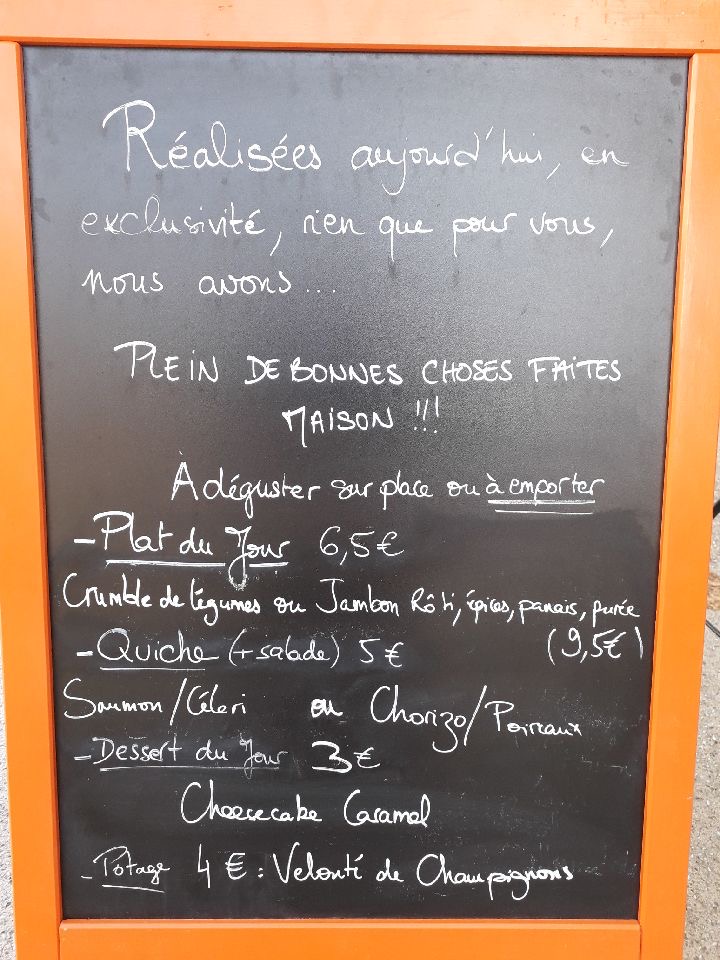 Réalisées aujourd'hui, en
exclusivité, rien que pour vous,
nous avons...
PLEIN DE BONNES CHOSES FAITES
MAISON !!!
À déguster sur place ou à emporter
- Plat du Jour 6,5€
Crumble de légumes ou Jambon Rôti, épices, panais, purée
(9,5€)
- Quiche (+ salade) 5€
Saumon/Céleri ou Chorizo/Poireaux
- Dessert du Jour 3€
Cheesecake Caramel
- Potage 4€ : Velouté de Champignons